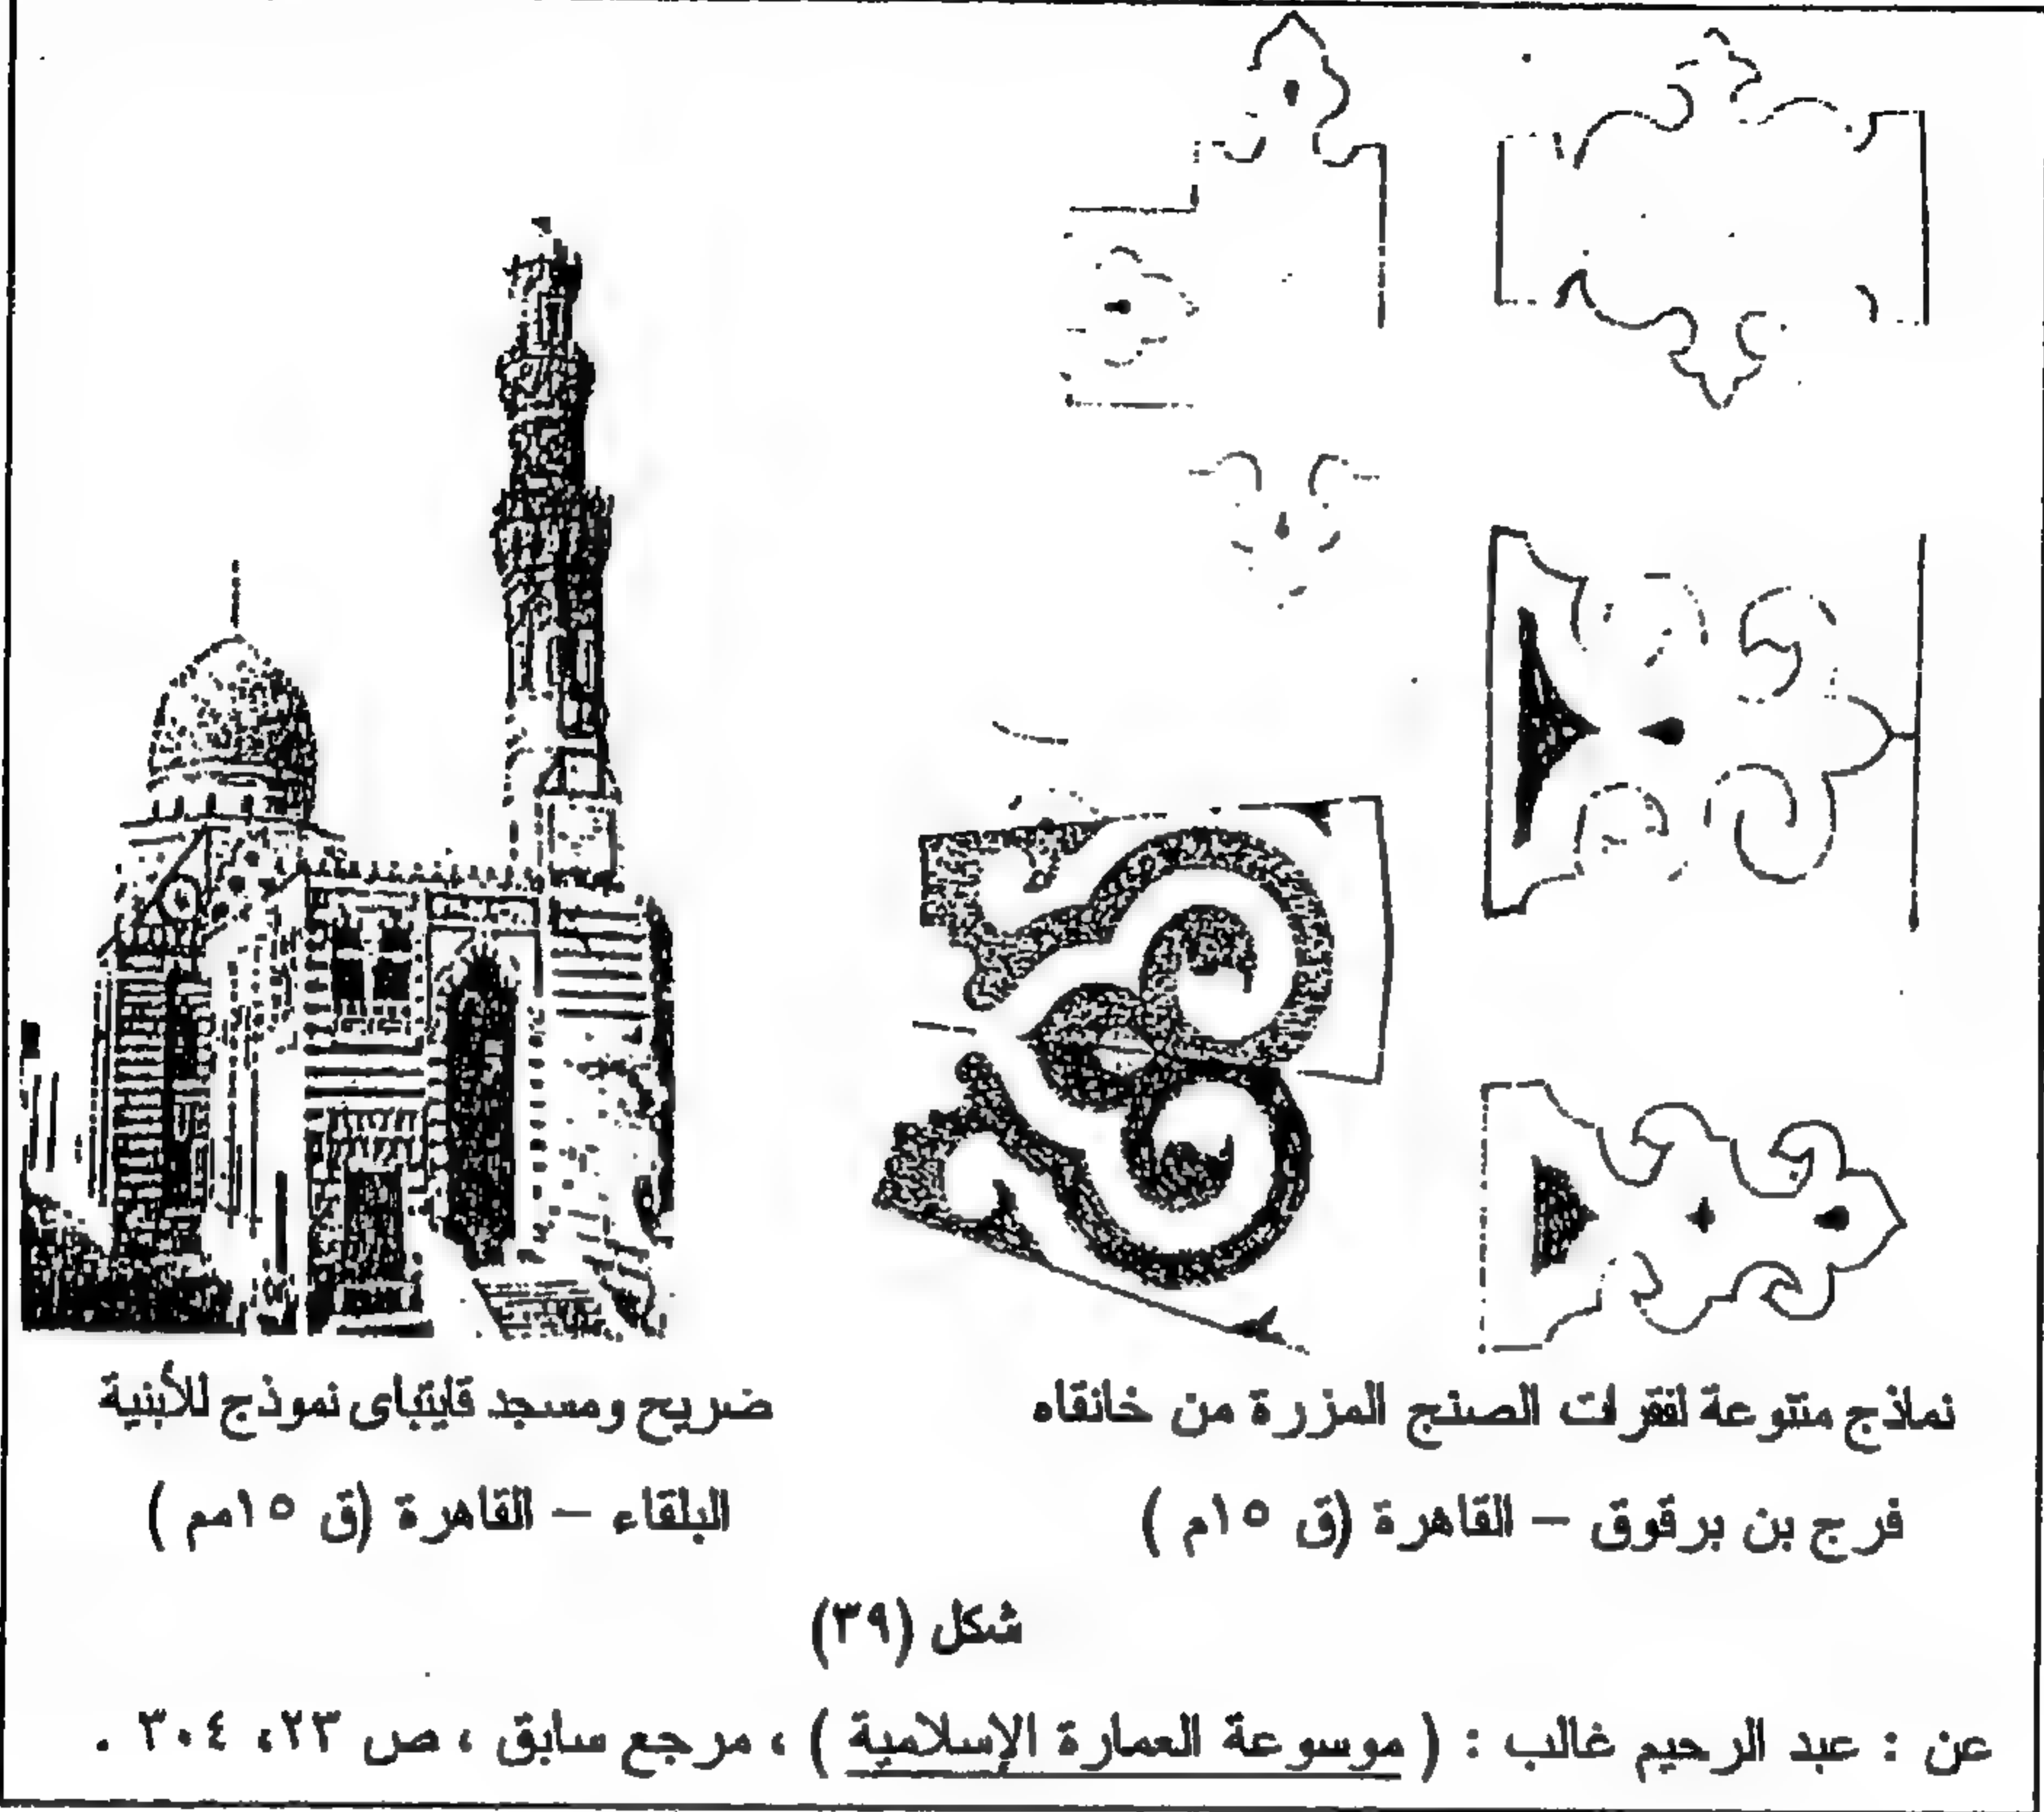 نماذج متنوعة لفقرات الصنج المزررة من خانقاه
فرج بن برقوق – القاهرة (ق ١٥م )
ضريح ومسجد قايتباى نموذج للأبنية
البلقاء – القاهرة (ق ١٥مم )
شكل (٣٩)
عن : عبد الرحيم غالب : ( موسوعة العمارة الإسلامية ) ، مرجع سابق ، ص ٢٣، ٣٠٤ .